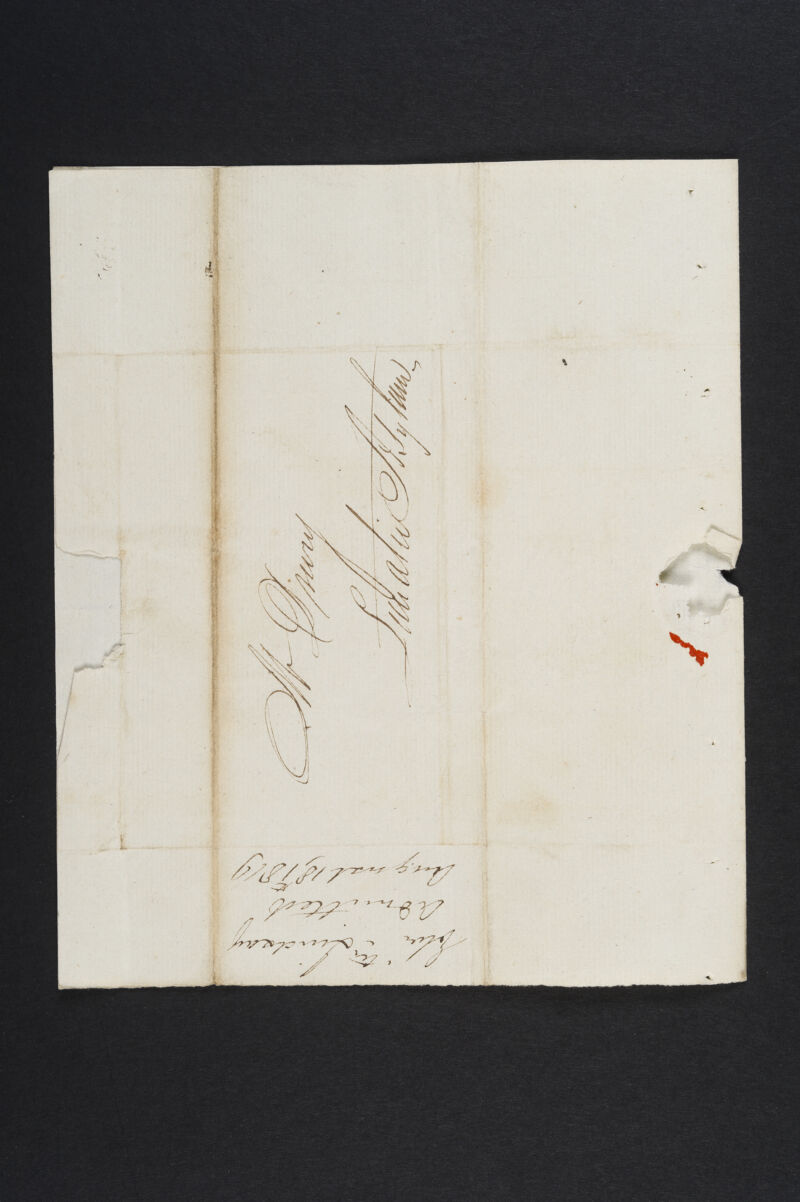 Mr Drury
Lunatic Asylum
John McLindsay
Admitted
August 18th 1819